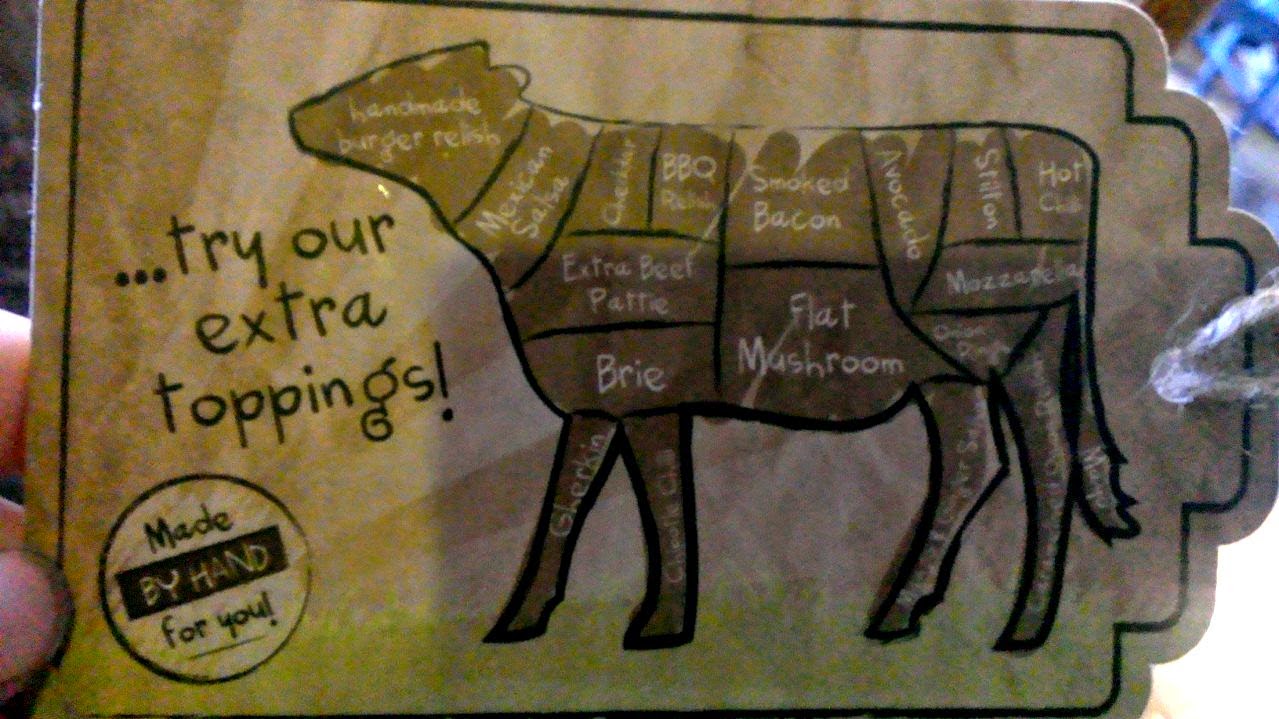 handmade
burger relish
Mexican
Salsa
Cheddar
BBQ
Relish
Smoked
Bacon
Avocado
Stilton
Hot
Mozzarella
Extra Beef
Pattie
Flat
Mushroom
Brie
Onion
Gherkin
Mayo
...try our
extra
toppings!
Made
BY HAND
for you!